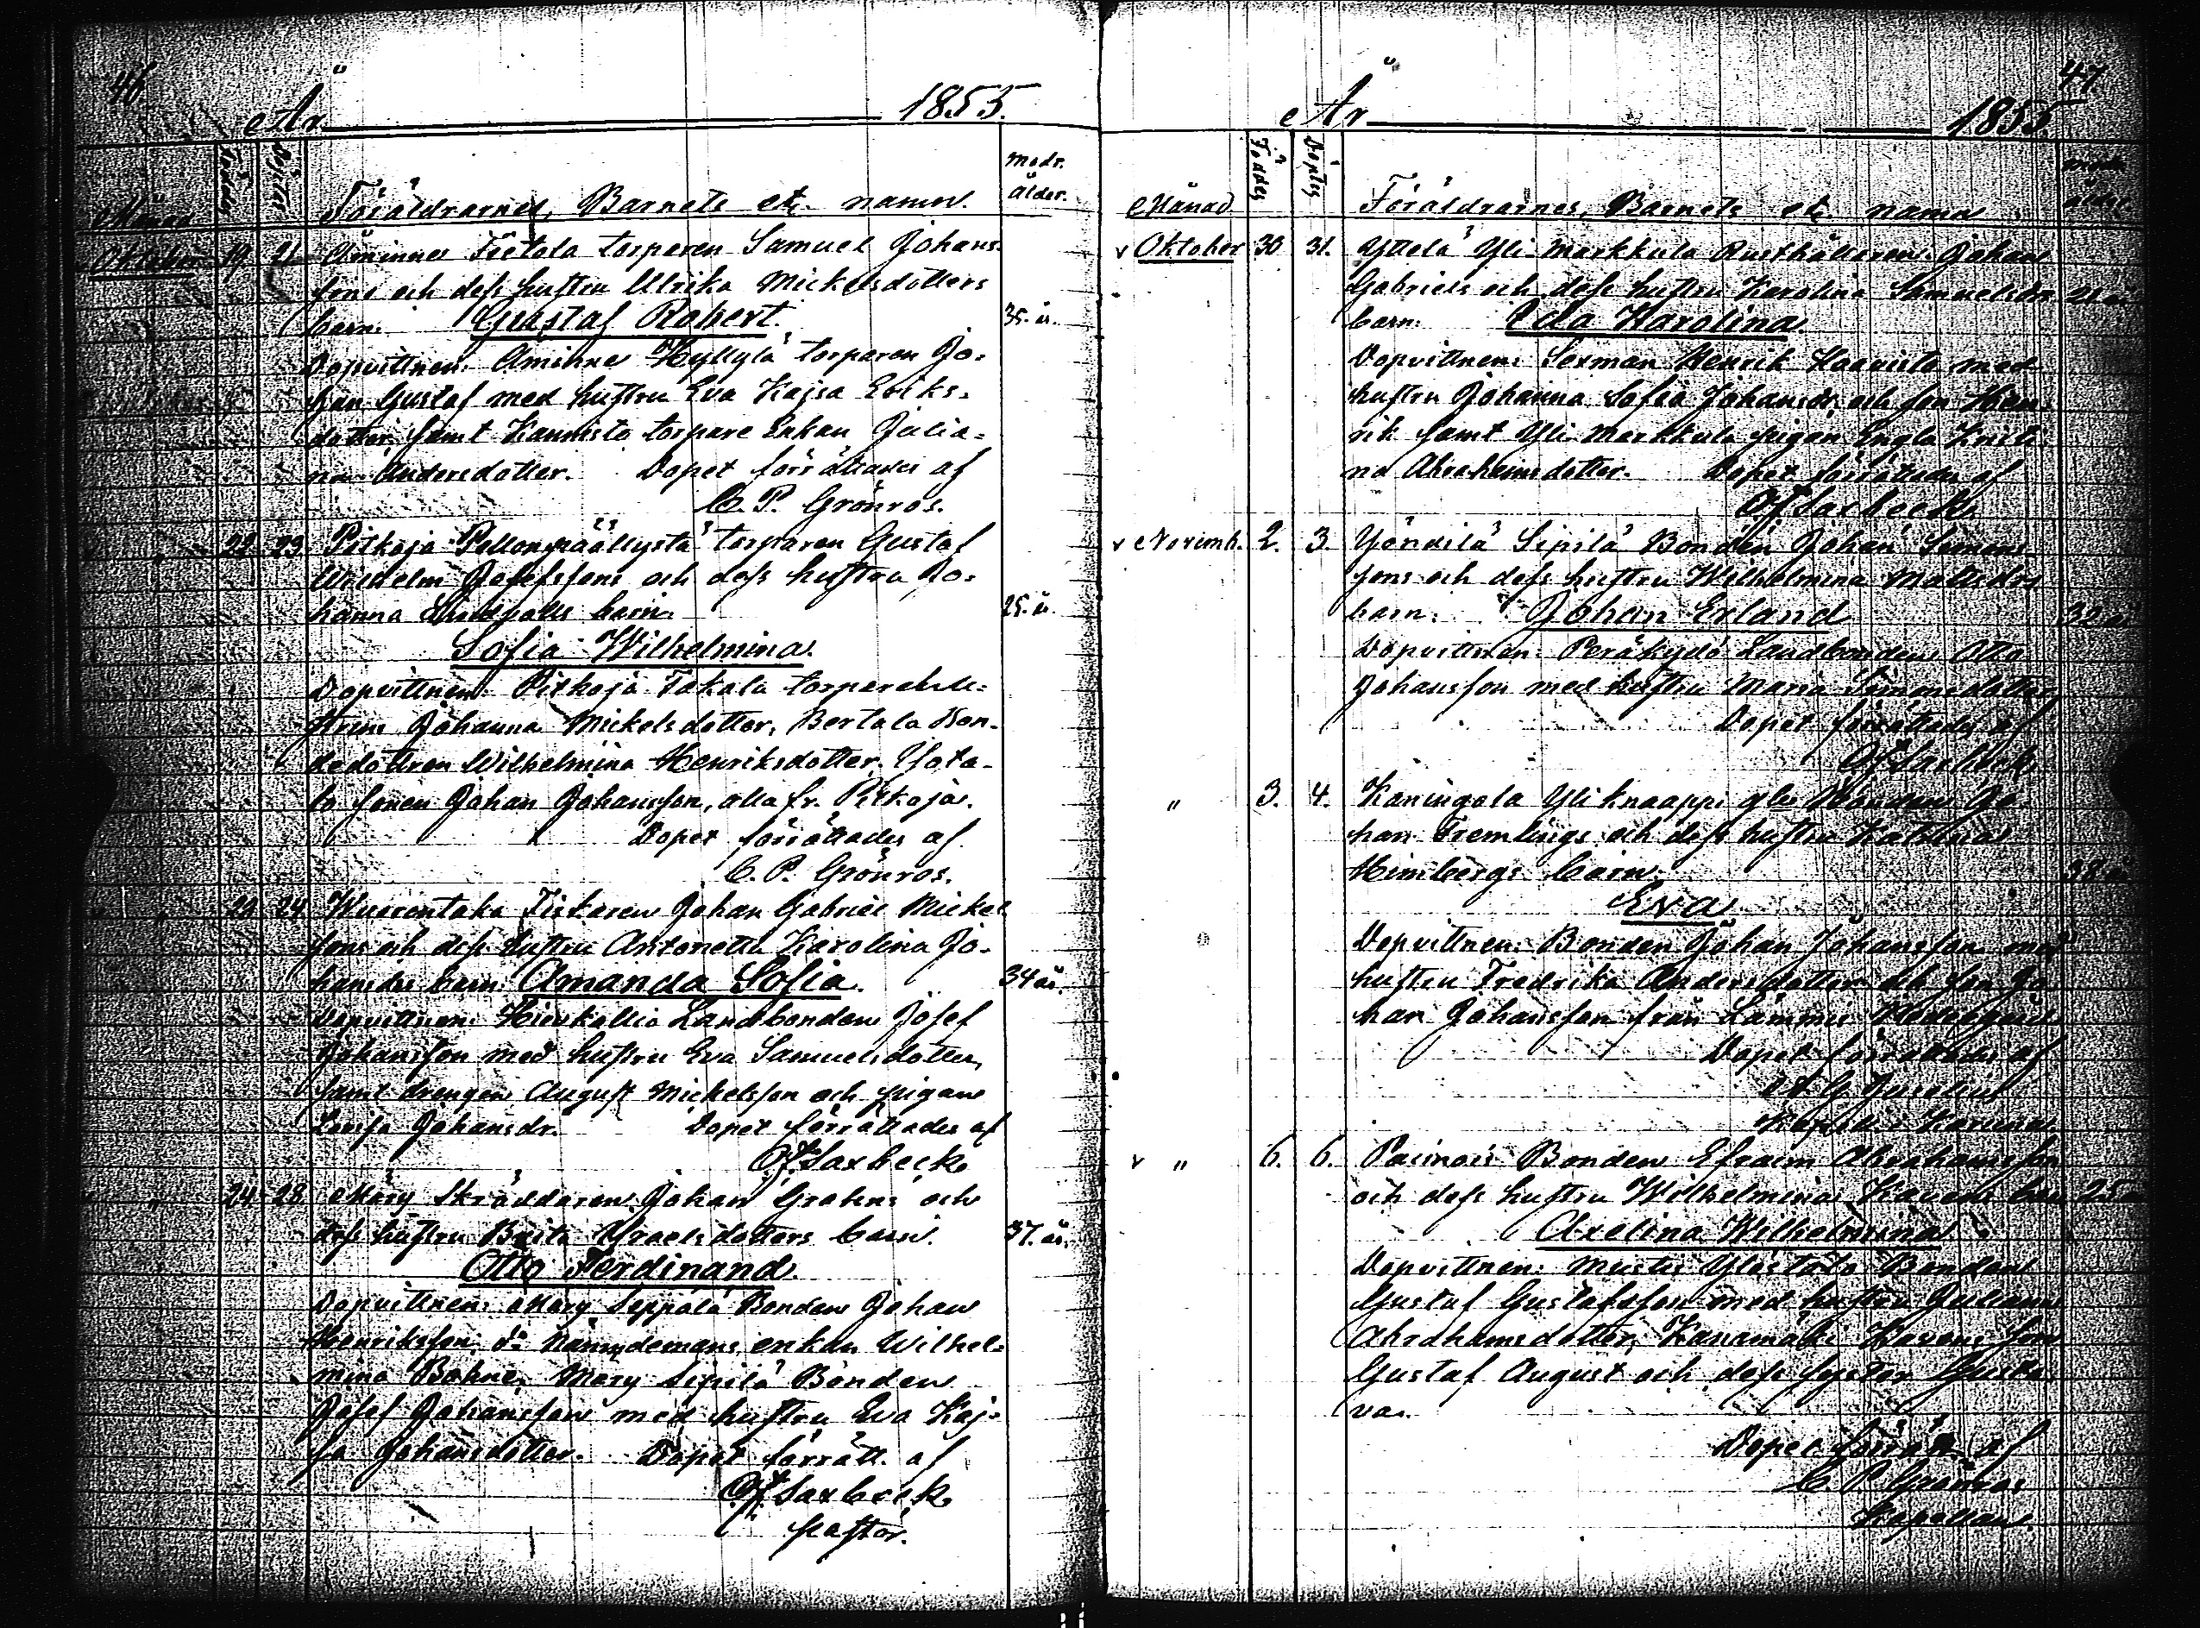 46
År 1855.
Månad Föddes Döptes Föräldrarnes, Barnets etc. namn. modr. ålder.
Oktober 19 21 Åminne Tietola torparen Samuel Johans-
sons och dess hustru Ulrika Mickelsdotters
barn: Gustaf Robert. 35. år.
Dopvittnen: Åminne Hyllylä torparen Jo-
han Gustaf med hustru Eva Kajsa Eriks-
dotter samt Kannisto torpare Enkan Julia-
na Andersdotter. Dopet förrättades af
C. P. Grönros.
" 22 23 Pitkäjä Pellonpäällystä torparen Gustaf
Wilhelm Josefssons och dess hustru Jo-
hanna barn. 25. år.
Sofia Wilhelmina.
Dopvittnen: Pitkäjä Takala torparehu-
strun Johanna Mickelsdotter, Bertala Bon-
dedottren Wilhelmina Henriksdotter, Yöta-
lo sonen Johan Johansson, alla fr. Pitkäjä.
Dopet förrättades af
C. P. Grönros.
" 20 24 Wuorentaka Fiskaren Johan Gabriel Mickel
sons och dess hustru Antonetta Karolina Jo-
hansdrs barn: Amanda Sofia. 34 år.
Dopvittnen: Hirvikallio Landbonden Josef
Johansson med hustru Eva Samuelsdotter,
samt drengen August Mickelsson och pigan
Lovisa Johansdr. Dopet förrättades af
Saxbeck
" 24 28 Märy Skräddaren Johan Grahns och
dess hustru Brita Israelsdotters barn. 37. år.
Otto Ferdinand.
Dopvittnen: Märy Seppälä Bonden Johan
Henriksson, do Nämndemans enkan Wilhel-
mina Bohne, Märy Sipilä Bonden
Josef Johansson med hustru Eva Kaj-
sa Johansdotter. Dopet förrätt. af
Saxbeck
pastor.
47
År 1855.
Månad Föddes Döptes Föräldrarnes, Barnets etc namn modr. ålder.
v Oktober 30 31. Yttelä Yli Markkula Rusthållaren Johan
Gabriels och dess hustru Karolina Samuelsdrs
barn: Eda Karolina
Dopvittnen: Sexman Henrik Haavisto med
hustru Johanna Sofia Johansdr. och son Hen-
rik samt Yli Markkula pigan Engla Kristi-
na Abrahamsdotter. Dopet förrättades af
Saxbeck
v Novemb. 2. 3. Yöndilä Sipilä Bonden Johan Simons-
sons och dess hustru Wilhelmina Mattsdrs
barn: Johan Erland 32 år
Dopvittnen: Peräkydö Landbonden Otto
Johansson med hustru Maria Simonsdotter
Dopet förrättades af
Saxbeck
" 3. 4. Kaningola Yliknaappi Bonden Jo-
han Fremlings och dess hustru Katarina
Himbergs barn: 38 år
Eva
Dopvittnen: Bonden Johan Johansson med
hustru Fredrika Andersdotter och son Jo-
han Johansson från Lammis
Dopet förrättades af
" 6. 6. Bonden Efraim Abrahamsson
och dess hustru Wilhelmina barn 25 år
Axelina Wilhelmina
Dopvittnen: Bonden
Gustaf Gustafsson med hustru Juliana
Abrahamsdotter, Kanamäki son
Gustaf August och dess syster Gusta-
va.
Dopet förrätt. af
C. P. Grönros
Kapellan.